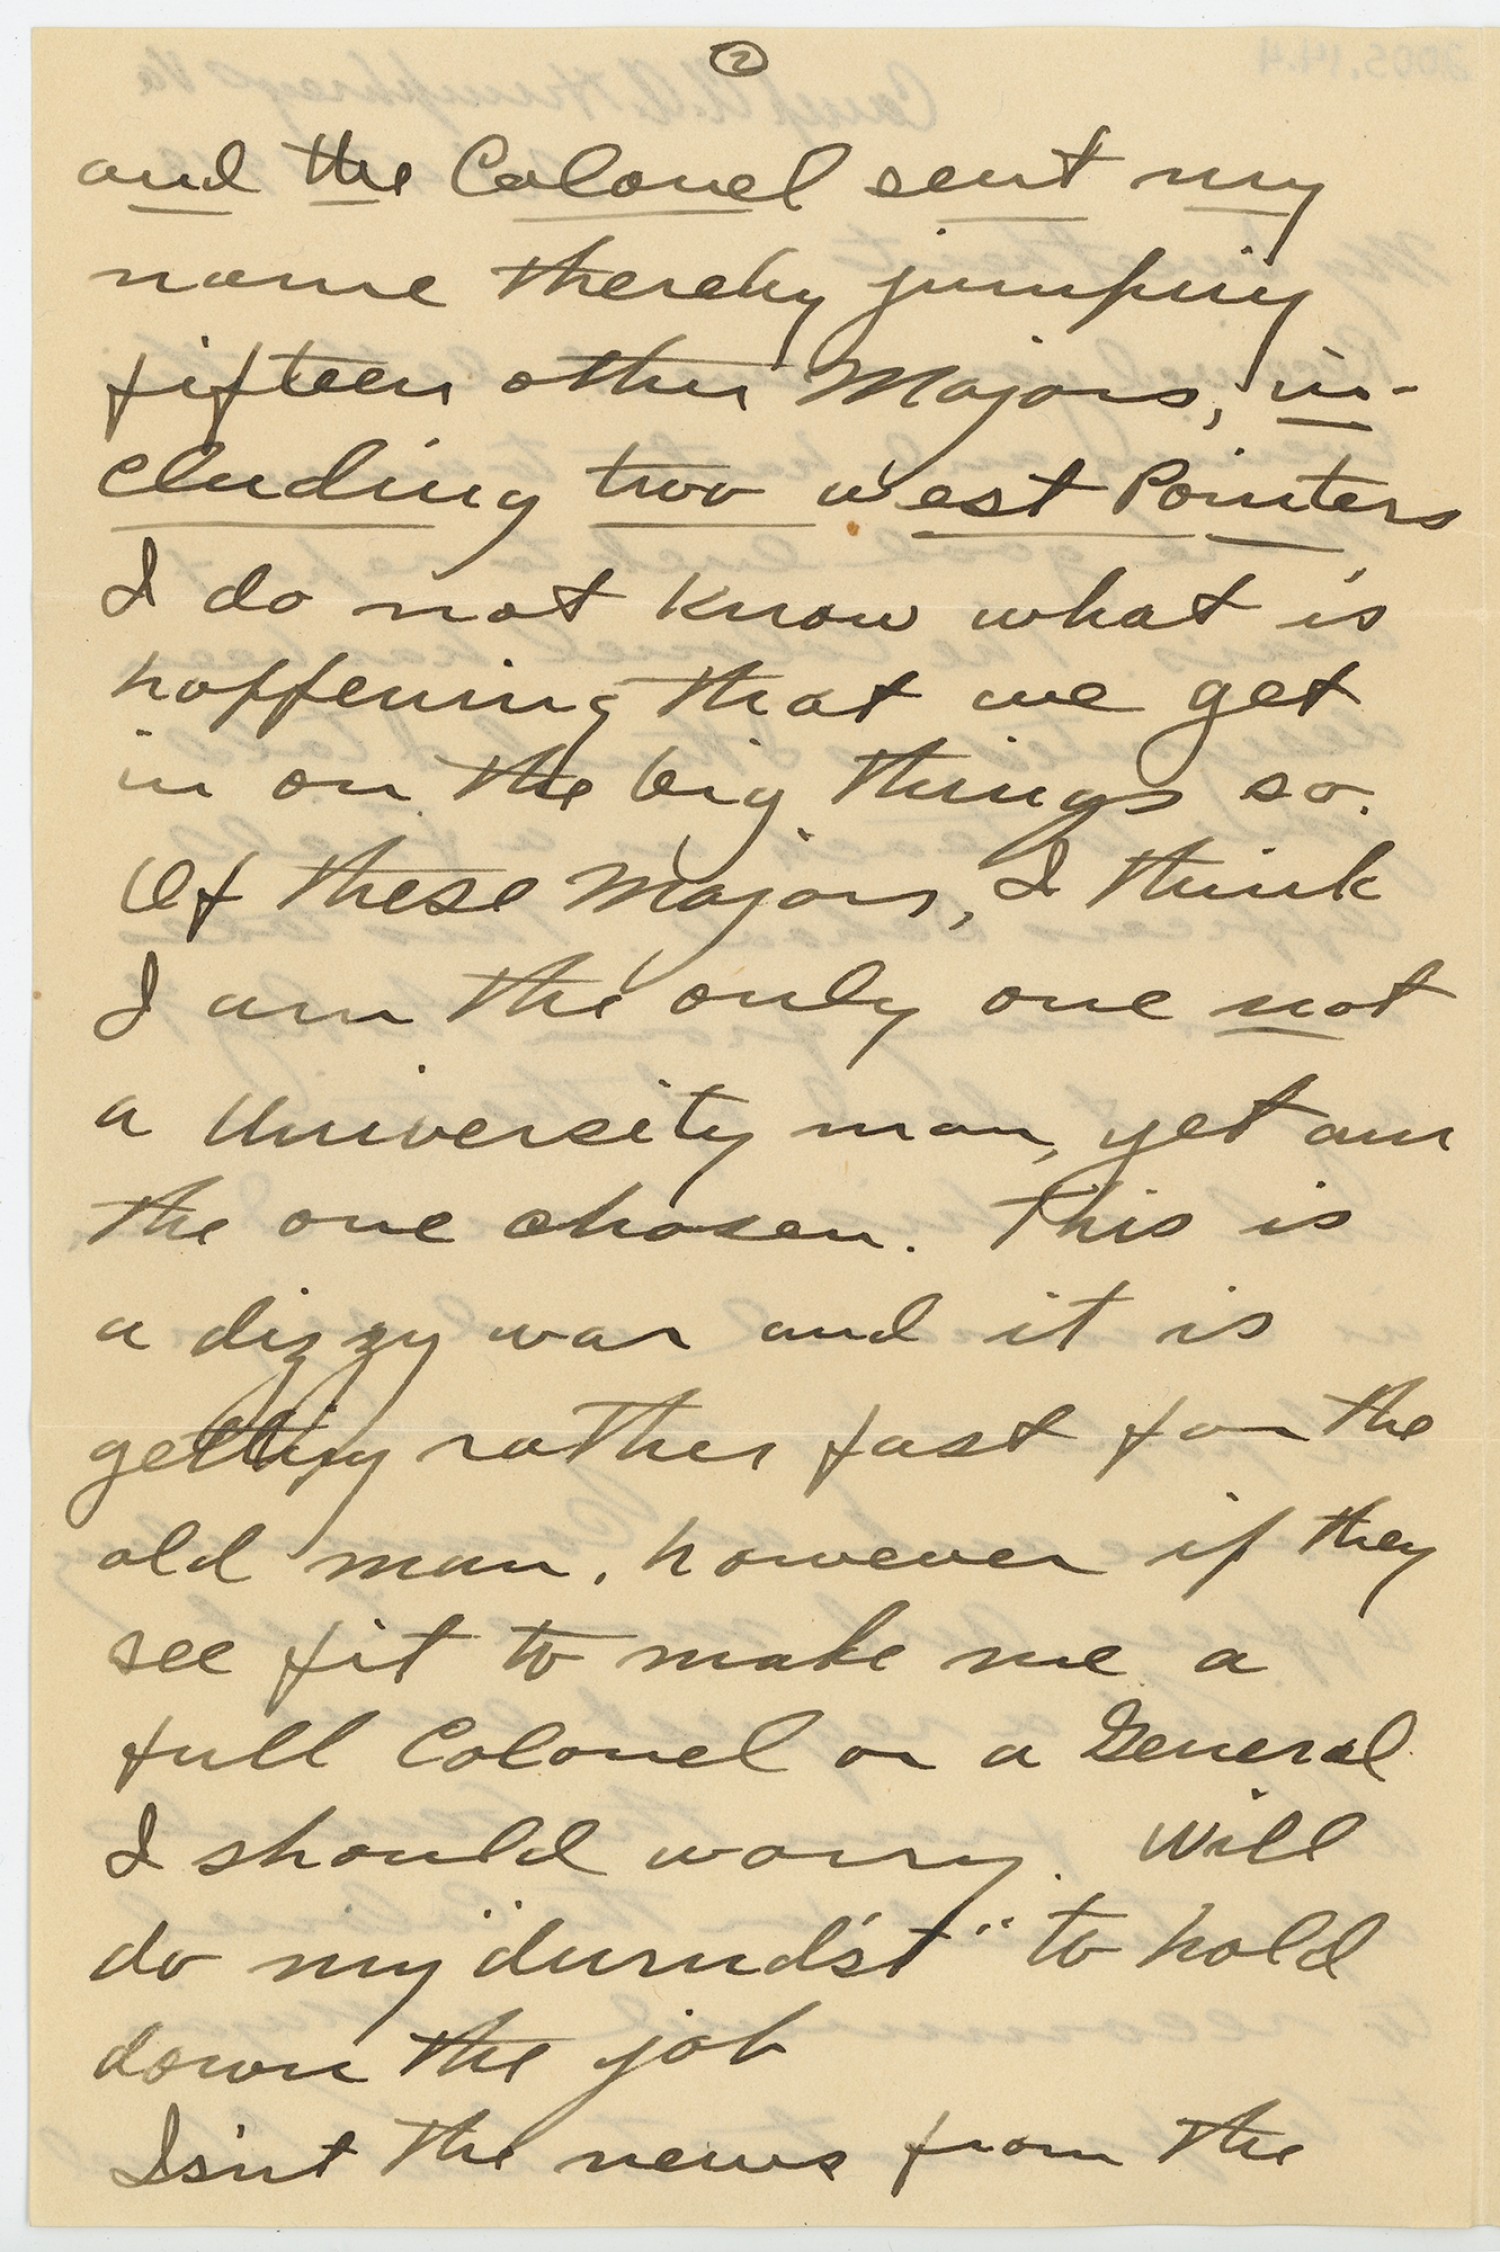 2
and the Colonel sent my
name thereby jumping
fifteen other Majors, in-
cluding two West Pointers
I do not know what is
happening that we get
in on the big things so.
Of these Majors, I think
I am the only one not
a University man, yet am
the one chosen. This is
a dizzy war and it is
getting rather fast for the
old man. however if they
see fit to make me a
full Colonel or a General
I should worry. Will
do my "durnd'st" to hold
down the job
Isn't the news from the